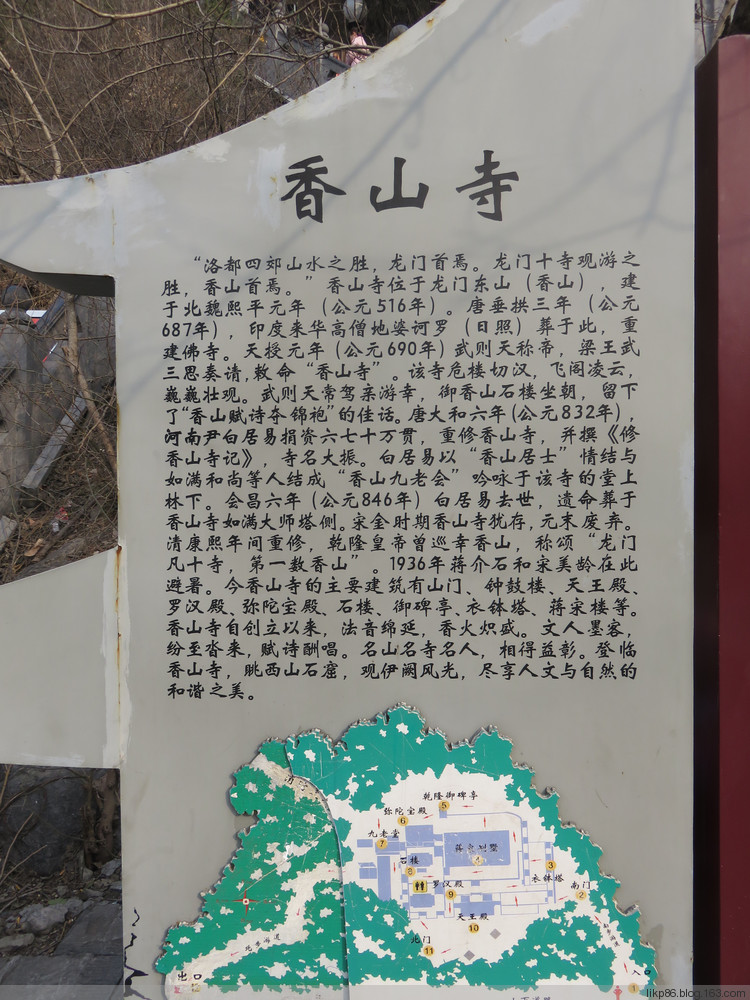 香山寺
“洛都四郊山水之胜，龙门首焉。龙门十寺观游之
胜，香山首焉。”香山寺位于龙门东山（香山），建
于北魏熙平元年（公元516年）。唐垂拱三年（公元
687年），印度来华高僧地婆诃罗（日照）葬于此，重
建佛寺。天授元年（公元690年）武则天称帝，梁王武
三思奏请，敕命“香山寺”。该寺危楼切汉，飞阁凌云，
巍巍壮观。武则天常驾亲游幸，御香山石楼坐朝，留下
了“香山赋诗夺锦袍”的佳话。唐大和六年（公元832年），
河南尹白居易捐资六七十万贯，重修香山寺，并撰《修
香山寺记》，寺名大振。白居易以“香山居士”情结与
如满和尚等人结成“香山九老会”吟咏于该寺的堂上
林下。会昌六年（公元846年）白居易去世，遗命葬于
香山寺如满大师塔侧。宋金时期香山寺犹存，元末废弃。
清康熙年间重修，乾隆皇帝曾巡幸香山，称颂“龙门
凡十寺，第一数香山”。1936年蒋介石和宋美龄在此
避暑。今香山寺的主要建筑有山门、钟鼓楼、天王殿、
罗汉殿、弥陀宝殿、石楼、御碑亭、衣钵塔、蒋宋楼等。
香山寺自创立以来，法音绵延，香火炽盛。文人墨客，
纷至沓来，赋诗酬唱。名山名寺名人，相得益彰。登临
香山寺，眺西山石窟，观伊阙风光，尽享人文与自然的
和谐之美。
乾隆御碑亭
5
弥陀宝殿
6
九老堂
7
蒋宋别墅
4
石楼
8
3
衣钵塔
罗汉殿
9
南门
2
天王殿
10
北门
11
出口
入口
1
likp86.blog.163.com